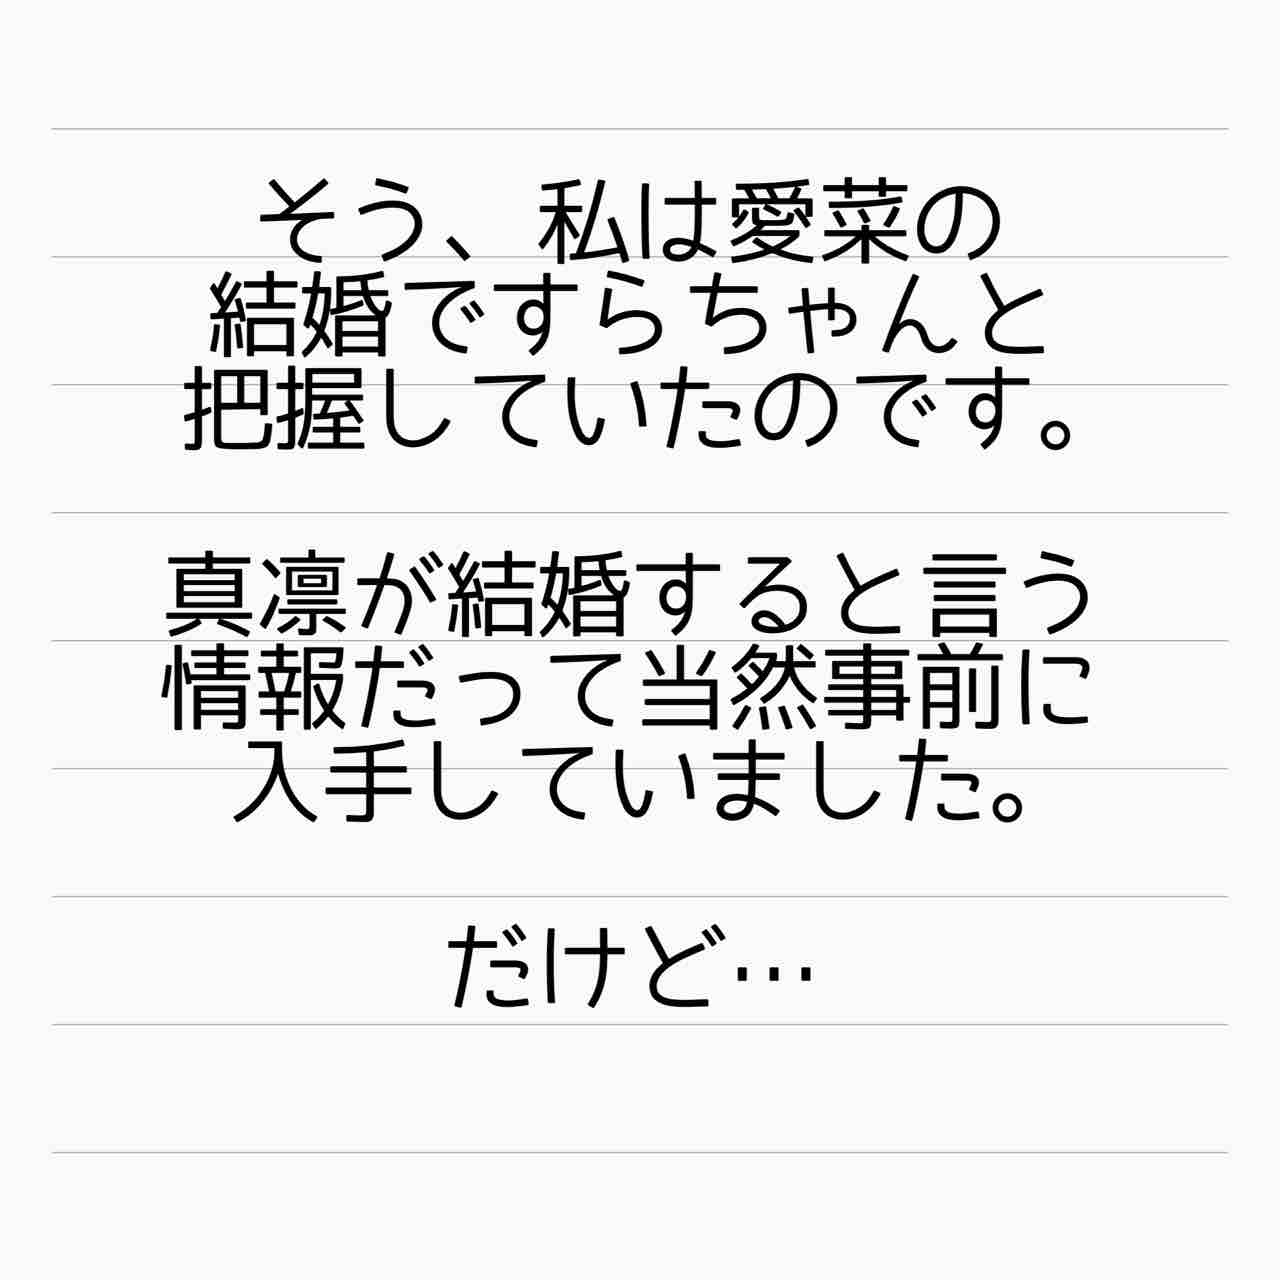 そう、私は愛菜の
結婚ですらちゃんと
把握していたのです。
真凛が結婚すると言う
情報だって当然事前に
入手していました。
だけど…